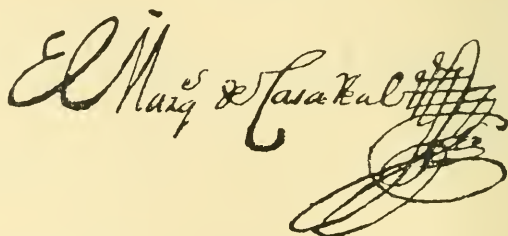 El Marq^s de Casa Real